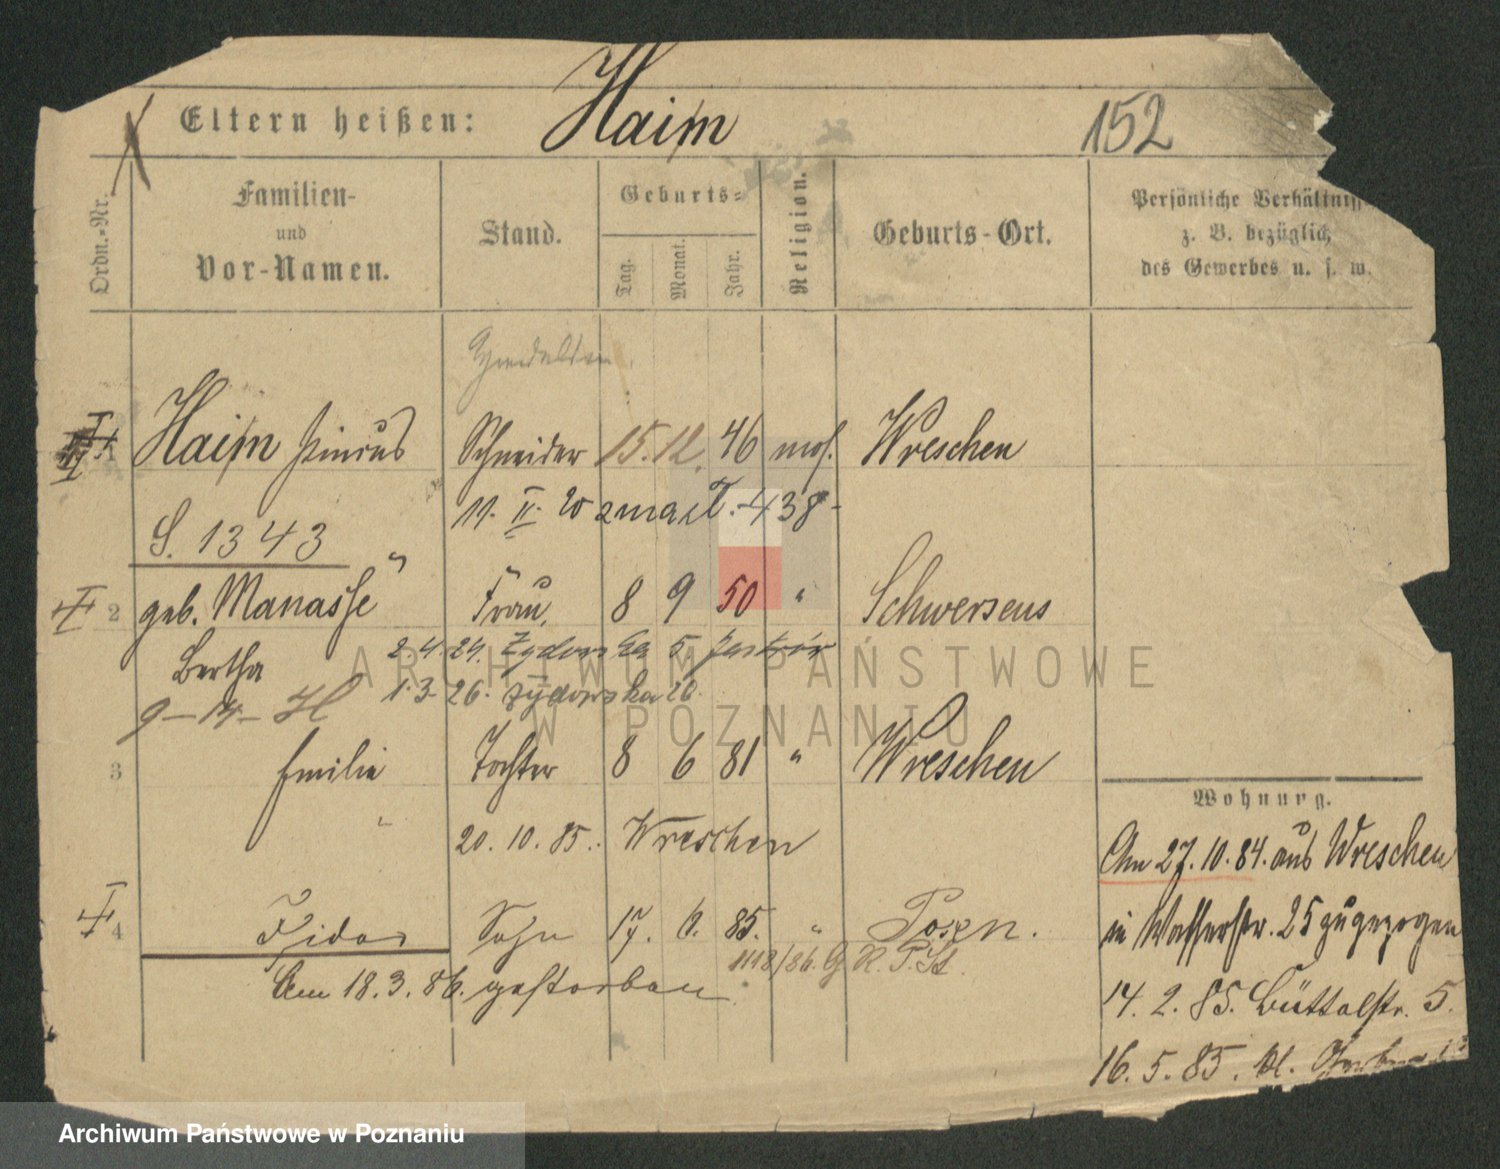 Eltern heißen: Haim 152
Ordn.-Nr.
Familien-
und
Vor-Namen.
Stand.
Geburts-
Tag.
Monat.
Jahr.
Religion.
Geburts-Ort.
Persönliche Verhältniss
z. B. bezüglich
des Gewerbes u. s. w.
1 Haim Pincus Schneider 15. 12. 46 mos. Wreschen
11. II. 20 zmarł. - 438 -
S. 1343
2 geb. Manasse " Frau, 8 9 50 " Schwersens
Bertha 2.4.24. Żydowska 5.
9-14- H 1.3.26. Żydowska 26.
3 Emilie Tochter 8 6 81 " Wreschen
" 20. 10. 85. Wreschen
4 Isidor Sohn 17. 6. 85. " Posen.
1118/86. G. R. P. St.
Am 18. 3. 86. gestorben
Wohnung.
Am 27. 10. 84. aus Wreschen
in Wasserstr. 25 zugezogen
14. 2. 85. Büttelstr. 5.
16. 5. 85. kl.
ARCHIWUM PAŃSTWOWE
W POZNANIU
Archiwum Państwowe w Poznaniu